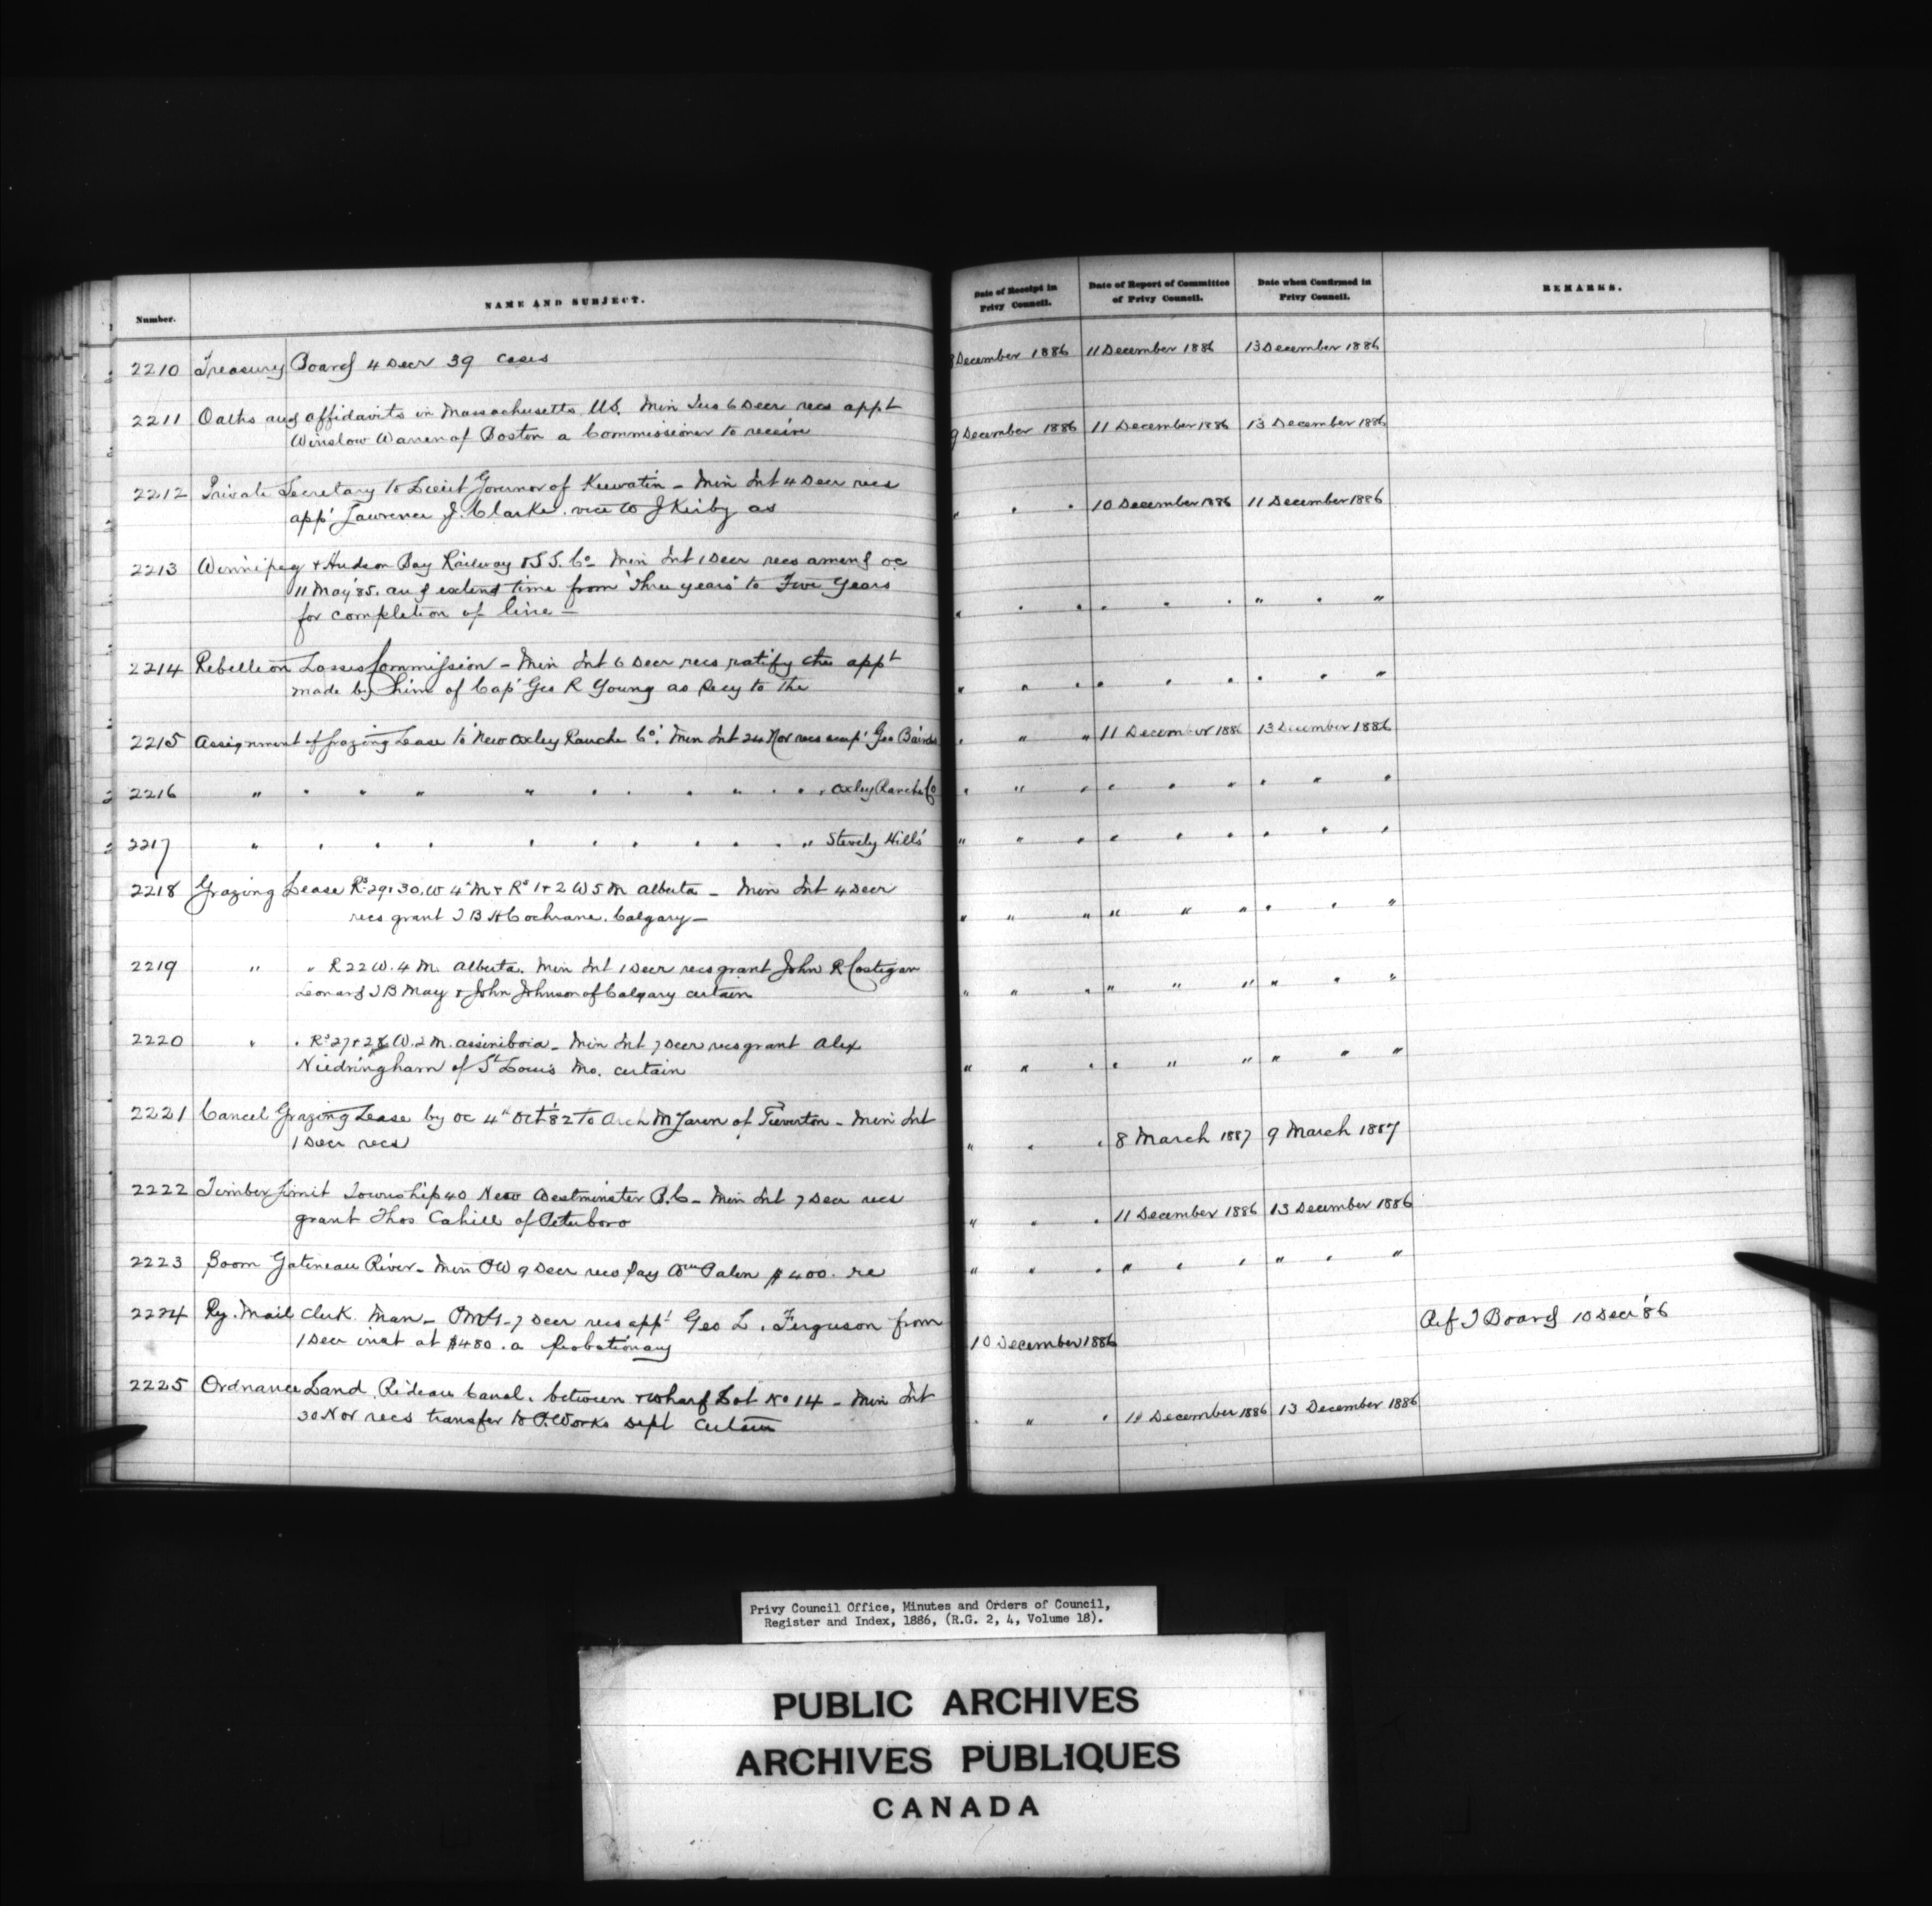 Number.
NAME AND SUBJECT.
Date of Receipt in Privy Council.
Date of Report of Committee of Privy Council.
Date when Confirmed in Privy Council.
REMARKS.
2210 Treasury Board 4 Decr 39 cases December 1886 11 December 1886 13 December 1886
2211 Oaths and affidavits in Massachusetts U.S. Min Jus 6 Decr recs appt
Winslow Warren of Boston a Commissioner to receive 9 December 1886 11 December 1886 13 December 1886
2212 Private Secretary to Lieut Governor of Keewatin - Min Int 4 Decr recs
appt Lawrence J. Clarke vice W J Kirby as " " " 10 December 1886 11 December 1886
2213 Winnipeg & Hudson Bay Railway & S.S. Co Min Int 1 Decr recs amend OC
11 May '85. and extend time from "Three years" to Five Years
for completion of line - " " " " " " " " "
2214 Rebellion Losses Commission - Min Int 6 Decr recs ratify the appt
made by him of Capt Geo R Young as Secy to the " " " " " " " " "
2215 Assignment of Grazing Lease to New Oxley Ranche Co. Min Int 24 Nov recs Geo Baird " " " 11 December 1886 13 December 1886
2216 " " " " " " " " " " " " Oxley Ranche Co " " " " " " " " "
2217 " " " " " " " " " " " Stavely Hill's " " " " " " " " "
2218 Grazing Lease Rs 29 & 30. W 4th M & Rs 1 & 2 W 5 M Alberta - Min Int 4 Decr
recs grant T B H Cochrane. Calgary - " " " " " " " " "
2219 " " R 22 W. 4 M. Alberta. Min Int 1 Decr recs grant John R Costigan
Leonard T B May & John Johnson of Calgary certain " " " " " " " " "
2220 " " Rs 27 & 28 W. 2 M. Assiniboia - Min Int 7 Decr recs grant Alex
Niedringham of St Louis Mo. certain " " " " " " " " "
2221 Cancel Grazing Lease by OC 4th Oct '82 to Arch of Tiverton - Min Int
1 Decr recs " " " 8 March 1887 9 March 1887
2222 Timber Limit Township 40 New Westminster B.C - Min Int 7 Decr recs
grant Thos Cahill of Peterboro " " " 11 December 1886 13 December 1886
2223 Boom Gatineau River - Min PW 9 Decr recs pay Wm Palen $400. re " " " " " " " " "
2224 Ry. Mail Clerk Man - PMG - 7 Decr recs appt Geo L. Ferguson from
1 Decr inst at $480. a Probationary 10 December 1886 Ref T Board 10 Decr '86
2225 Ordnance Land Rideau Canal. between & Wharf Lot No 14 - Min Int
30 Nov recs transfer to P. Works Dept certain " " " 11 December 1886 13 December 1886
Privy Council Office, Minutes and Orders of Council,
Register and Index, 1886, (R.G. 2, 4, Volume 18).
PUBLIC ARCHIVES
ARCHIVES PUBLIQUES
CANADA